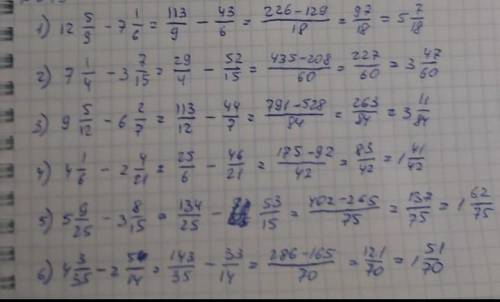 1) 12 5/9 - 7 1/6 = 113/9 - 43/6 = 226-129/18 = 97/18 = 5 7/18
2) 7 1/4 - 3 7/15 = 29/4 - 52/15 = 435-208/60 = 227/60 = 3 47/60
3) 9 5/12 - 6 2/7 = 113/12 - 44/7 = 791-528/84 = 263/84 = 3 11/84
4) 4 1/6 - 2 4/21 = 25/6 - 46/21 = 175-92/42 = 83/42 = 1 41/42
5) 5 9/25 - 3 8/15 = 134/25 - 53/15 = 402-265/75 = 137/75 = 1 62/75
6) 4 3/35 - 2 5/14 = 143/35 - 33/14 = 286-165/70 = 121/70 = 1 51/70